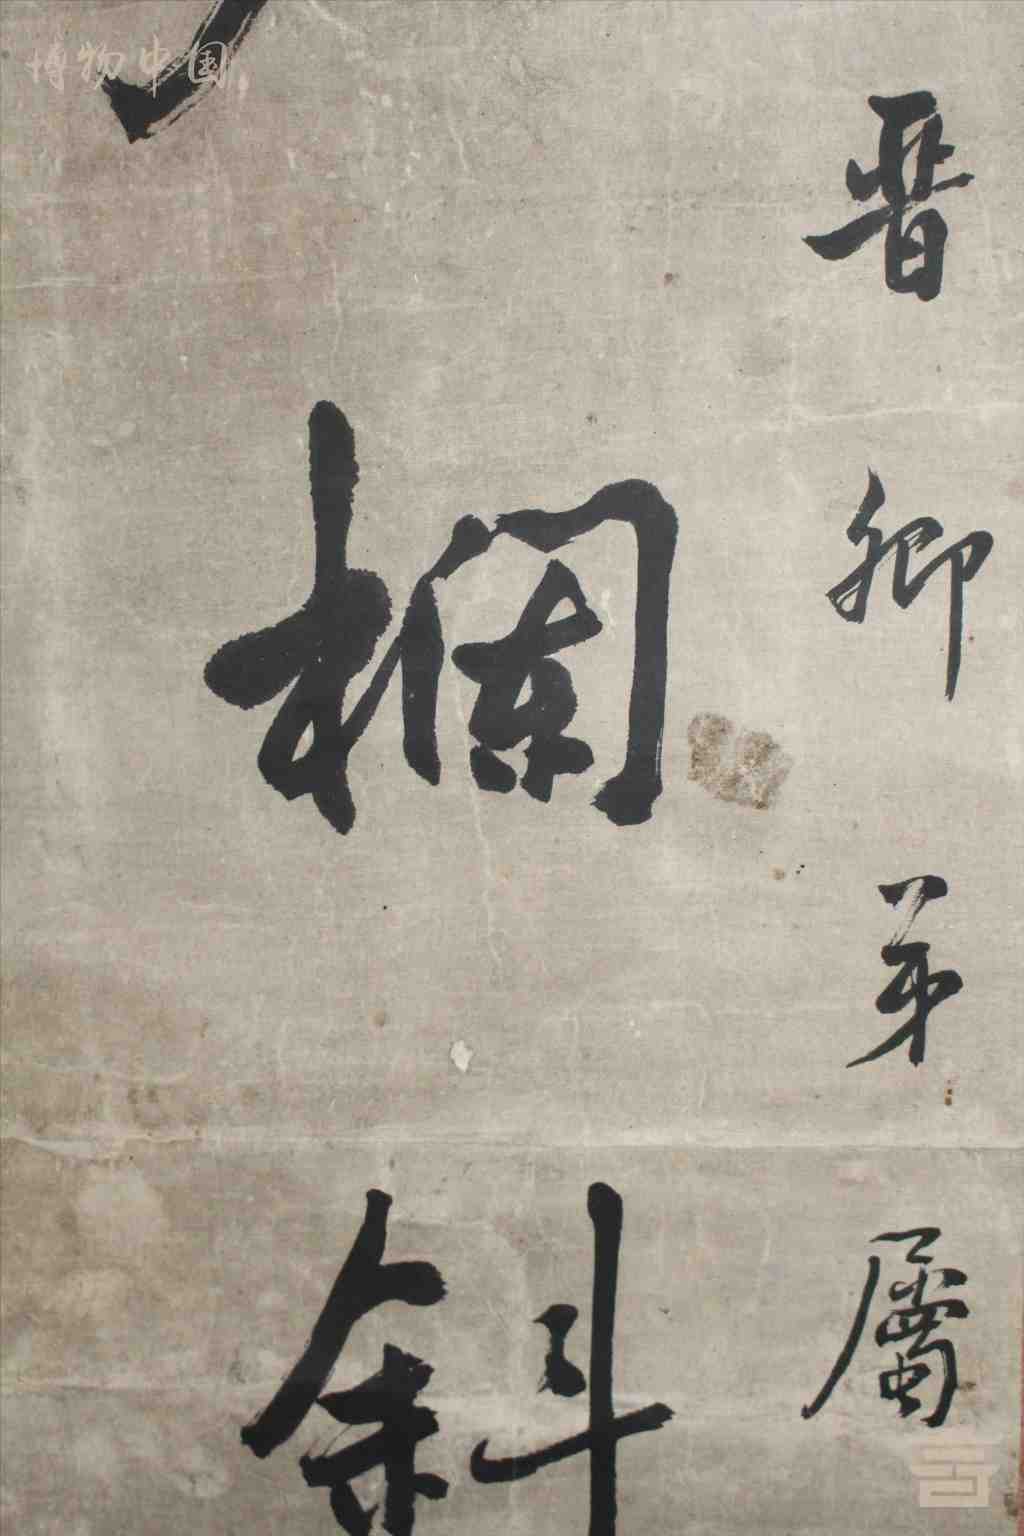 晋卿弟屬
欄斜
博物中国